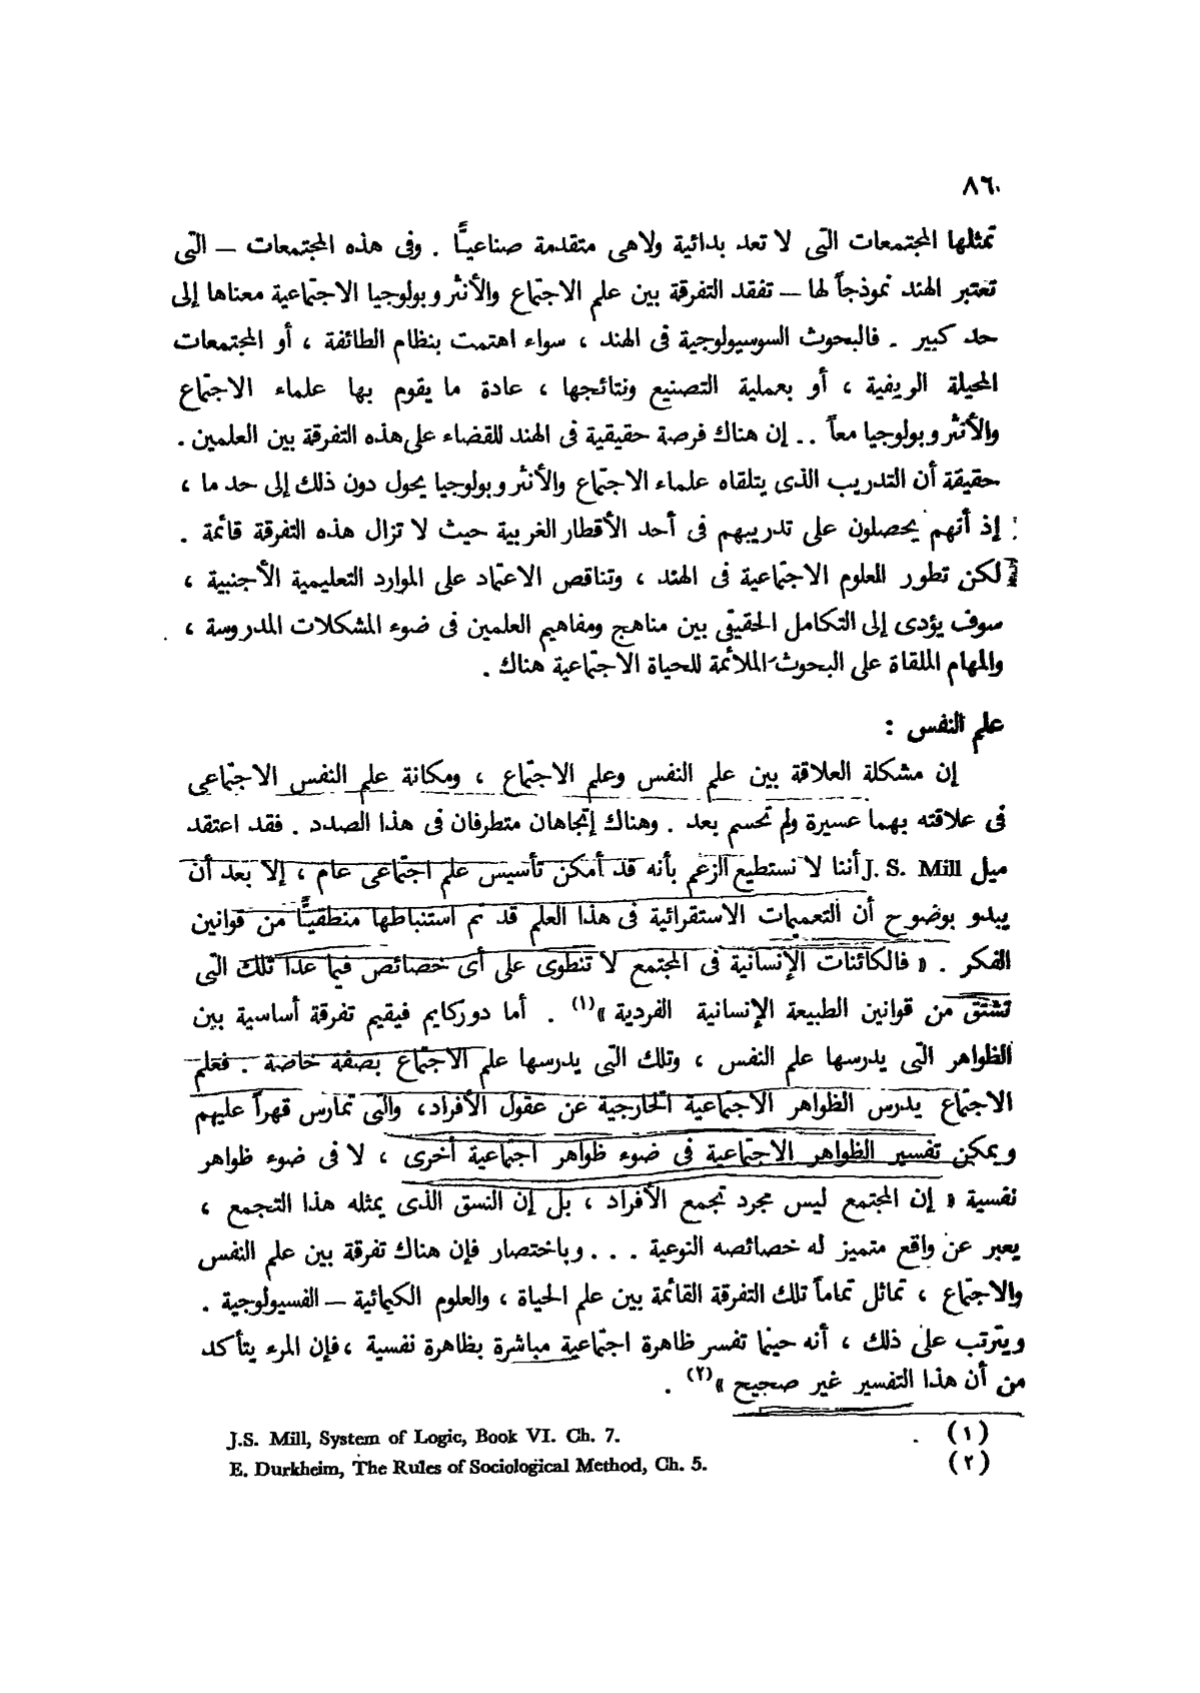 ٨٦
تمثلها المجتمعات التى لا تعد بدائية ولاهى متقدمة صناعيًّا . وفى هذه المجتمعات — التى
تعتبر الهند نموذجاً لها — تفقد التفرقة بين علم الاجتماع والأنثروبولوجيا الاجتماعية معناها إلى
حد كبير . فالبحوث السوسيولوجية فى الهند ، سواء اهتمت بنظام الطائفة ، أو المجتمعات
المحيلة الريفية ، أو بعملية التصنيع ونتائجها ، عادة ما يقوم بها علماء الاجتماع
والأنثروبولوجيا معاً . . إن هناك فرصة حقيقية فى الهند للقضاء على هذه التفرقة بين العلمين .
حقيقة أن التدريب الذى يتلقاه علماء الاجتماع والأنثروبولوجيا يحول دون ذلك إلى حد ما ،
إذ أنهم يحصلون على تدريبهم فى أحد الأقطار الغربية حيث لا تزال هذه التفرقة قائمة .
لكن تطور العلوم الاجتماعية فى الهند ، وتناقص الاعتماد على الموارد التعليمية الأجنبية ،
سوف يؤدى إلى التكامل الحقيقى بين مناهج ومفاهيم العلمين فى ضوء المشكلات المدروسة ،
والمهام الملقاة على البحوث الملائمة للحياة الاجتماعية هناك .
علم النفس :
إن مشكلة العلاقة بين علم النفس وعلم الاجتماع ، ومكانة علم النفس الاجتماعى
فى علاقته بهما عسيرة ولم تحسم بعد . وهناك إتجاهان متطرفان فى هذا الصدد . فقد اعتقد
ميل J. S. Mill أننا لا نستطيع الزعم بأنه قد أمكن تأسيس علم اجتماعى عام ، إلا بعد أن
يبدو بوضوح أن التعميمات الاستقرائية فى هذا العلم قد تم استنباطها منطقيًّا من قوانين
الفكر . « فالكائنات الإنسانية فى المجتمع لا تنطوى على أى خصائص فيما عدا تلك التى
تشتق من قوانين الطبيعة الإنسانية الفردية »(١) . أما دوركايم فيقيم تفرقة أساسية بين
الظواهر التى يدرسها علم النفس ، وتلك التى يدرسها علم الاجتماع بصفة خاصة . فعلم
الاجتماع يدرس الظواهر الاجتماعية الخارجية عن عقول الأفراد، والتى تمارس قهراً عليهم
ويمكن تفسير الظواهر الاجتماعية فى ضوء ظواهر اجتماعية أخرى ، لا فى ضوء ظواهر
نفسية « إن المجتمع ليس مجرد تجمع الأفراد ، بل إن النسق الذى يمثله هذا التجمع ،
يعبر عن واقع متميز له خصائصه النوعية . . . وباختصار فإن هناك تفرقة بين علم النفس
والاجتماع ، تماثل تماماً تلك التفرقة القائمة بين علم الحياة ، والعلوم الكيمائية — الفسيولوجية .
ويترتب على ذلك ، أنه حينما تفسر ظاهرة اجتماعية مباشرة بظاهرة نفسية ، فإن المرء يتأكد
من أن هذا التفسير غير صحيح »(٢) .
(١) J.S. Mill, System of Logic, Book VI. Ch. 7.
(٢) E. Durkheim, The Rules of Sociological Method, Ch. 5.